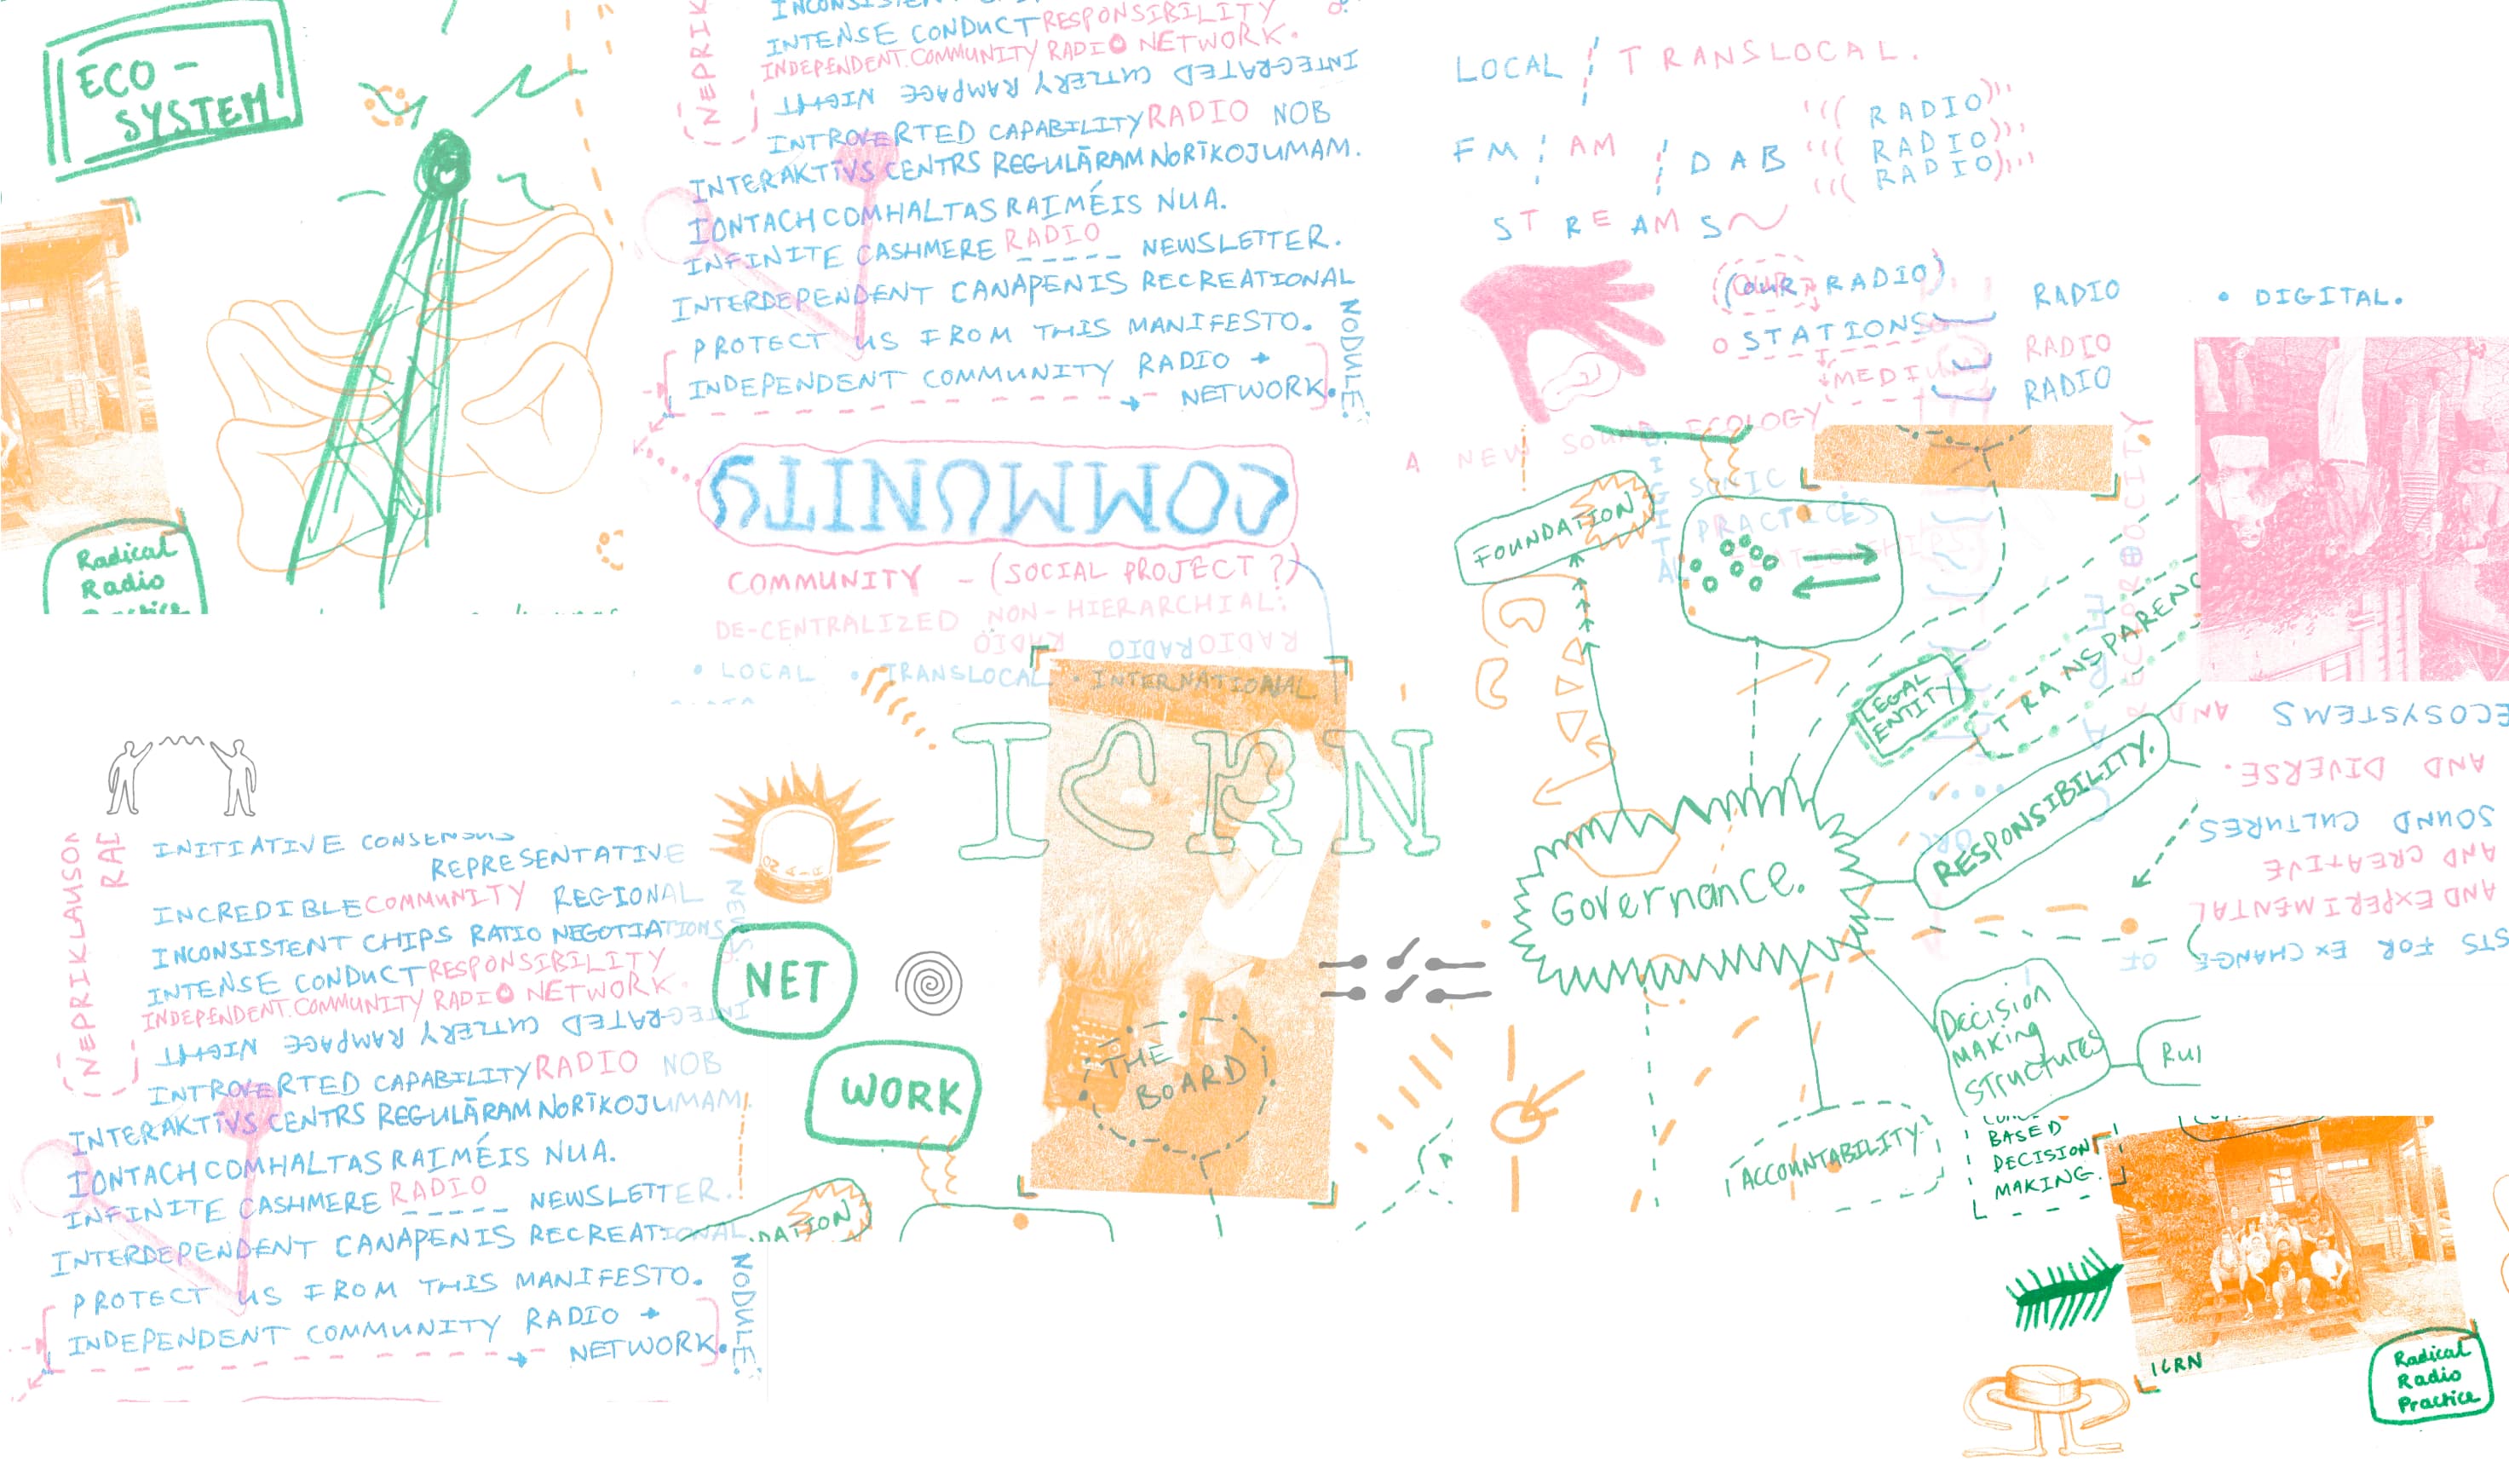 ECO-
SYSTEM
Radical
Radio
Practice
(NEPRIK
INTENSE CONDUCT RESPONSIBILITY
INDEPENDENT. COMMUNITY RADIO NETWORK.
INTEGRATED CUTLERY RAMPAGE NIGHT
INTROVERTED CAPABILITY RADIO NOB
INTERAKTĪVS CENTRS REGULĀRAM NORĪKOJUMAM.
IONTACH COMHALTAS RAIMÉIS NUA.
INFINITE CASHMERE RADIO ----- NEWSLETTER.
INTERDEPENDENT CANAPENIS RECREATIONAL
PROTECT US FROM THIS MANIFESTO.
INDEPENDENT COMMUNITY RADIO →
NETWORK.
NODULE.
COMMUNITY
COMMUNITY - (SOCIAL PROJECT?)
DE-CENTRALIZED NON-HIERARCHIAL:
RADIO RADIO RADIO
• LOCAL • TRANSLOCAL • INTERNATIONAL
LOCAL / TRANSLOCAL.
FM / AM / DAB
((( RADIO)))
((( RADIO)))
((( RADIO)))
STREAMS~
(OUR RADIO)
STATIONS
MEDIUM
RADIO
RADIO
RADIO
• DIGITAL.
A NEW SOUND ECOLOGY
DIGITAL
SONIC
PRACTICES
FOUNDATION
LEGAL
ENTITY
TRANSPARENC
RESPONSIBILITY.
Governance.
Decision
MAKing
Structures
Rul
ACCOUNTABILITY
BASED
DECISION
MAKING.
ECOSYSTEMS AND
AND DIVERSE.
SOUND CULTURES
AND CREATIVE
AND EXPERIMENTAL
STS FOR EXCHANGE OF
ICRN
THE
BOARD
NET
WORK
DATION
(NEPRIKLAUSOM
RAD
INITIATIVE CONSENSUS
REPRESENTATIVE
INCREDIBLE COMMUNITY REGIONAL
INCONSISTENT CHIPS RATIO NEGOTIATIONS
INTENSE CONDUCT RESPONSIBILITY
INDEPENDENT. COMMUNITY RADIO NETWORK.
INTEGRATED CUTLERY RAMPAGE NIGHT
INTROVERTED CAPABILITY RADIO NOB
INTERAKTĪVS CENTRS REGULĀRAM NORĪKOJUMAM.
IONTACH COMHALTAS RAIMÉIS NUA.
INFINITE CASHMERE RADIO ----- NEWSLETTER.
INTERDEPENDENT CANAPENIS RECREATIONAL
PROTECT US FROM THIS MANIFESTO.
INDEPENDENT COMMUNITY RADIO →
NETWORK.
NODULE.
ICRN
Radical
Radio
Practice